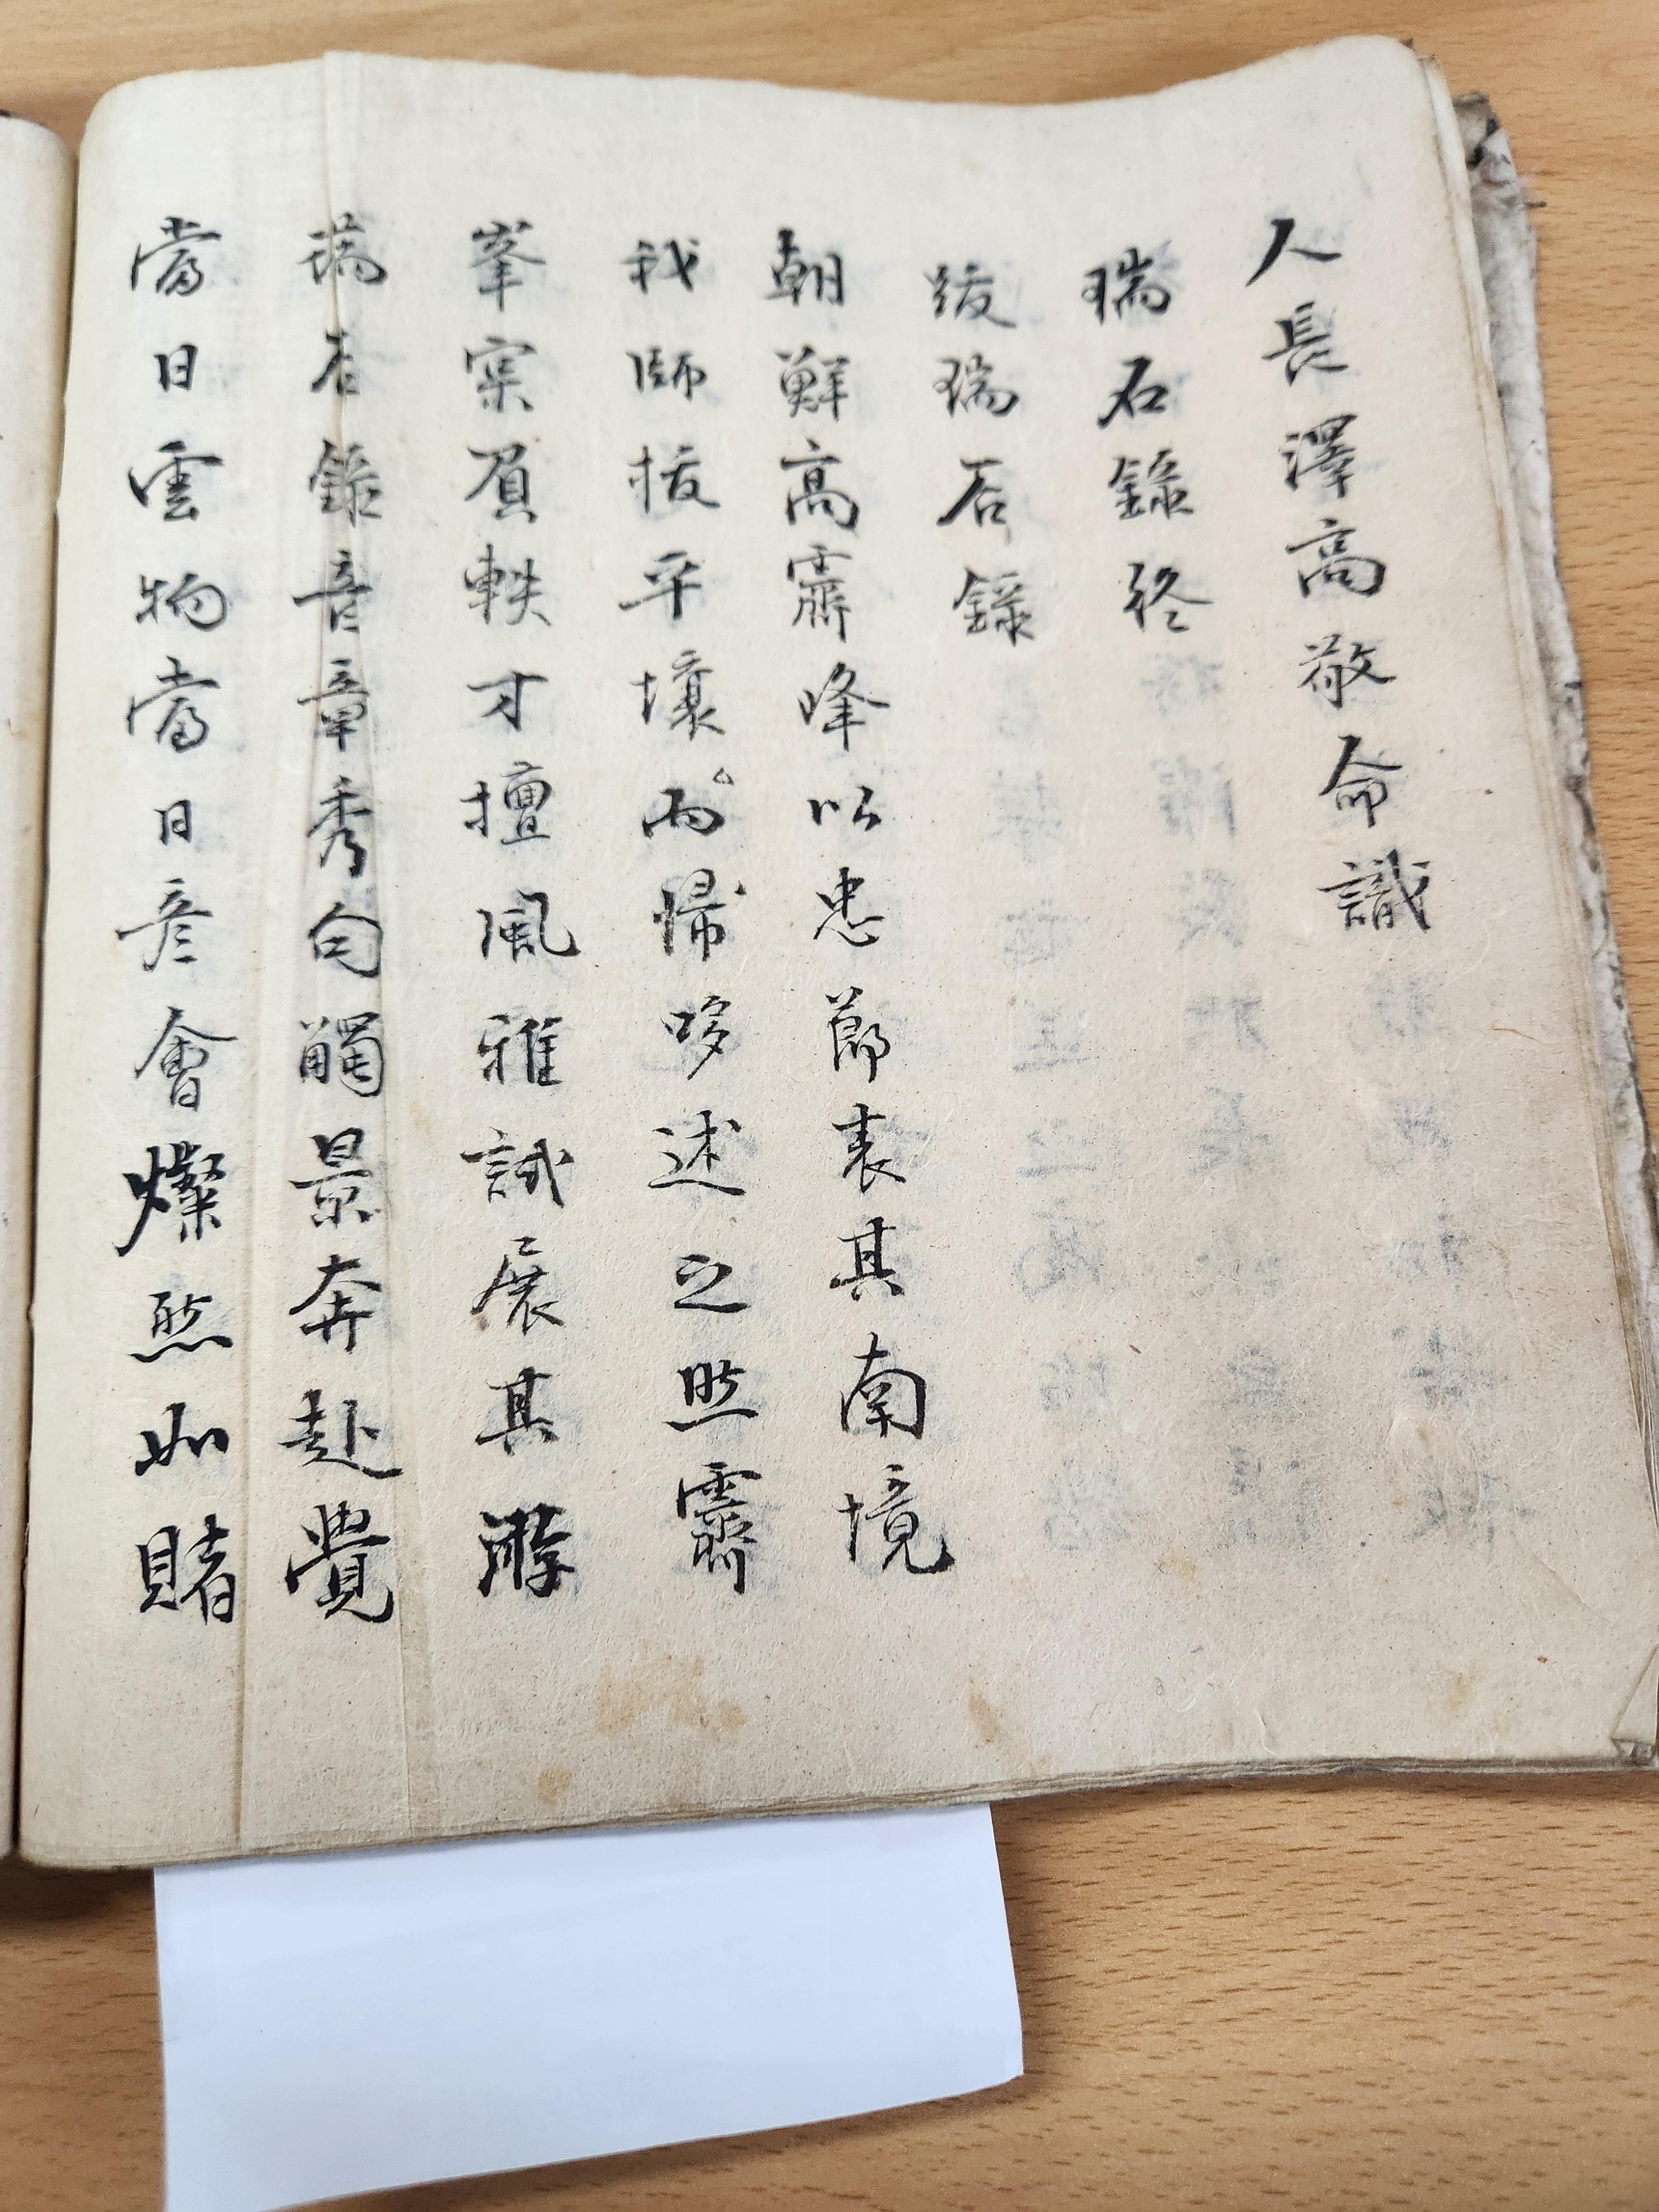 人長澤高敬命識
瑞石錄終
跋瑞石錄
朝鮮高霽峰以忠節表其南境
我師拔平壤而歸哆述之然霽
峯寔負軼才擅風雅試展其游
瑞石錄音章秀句觸景奔赴覺
當日雲物當日彦會燦然如賭